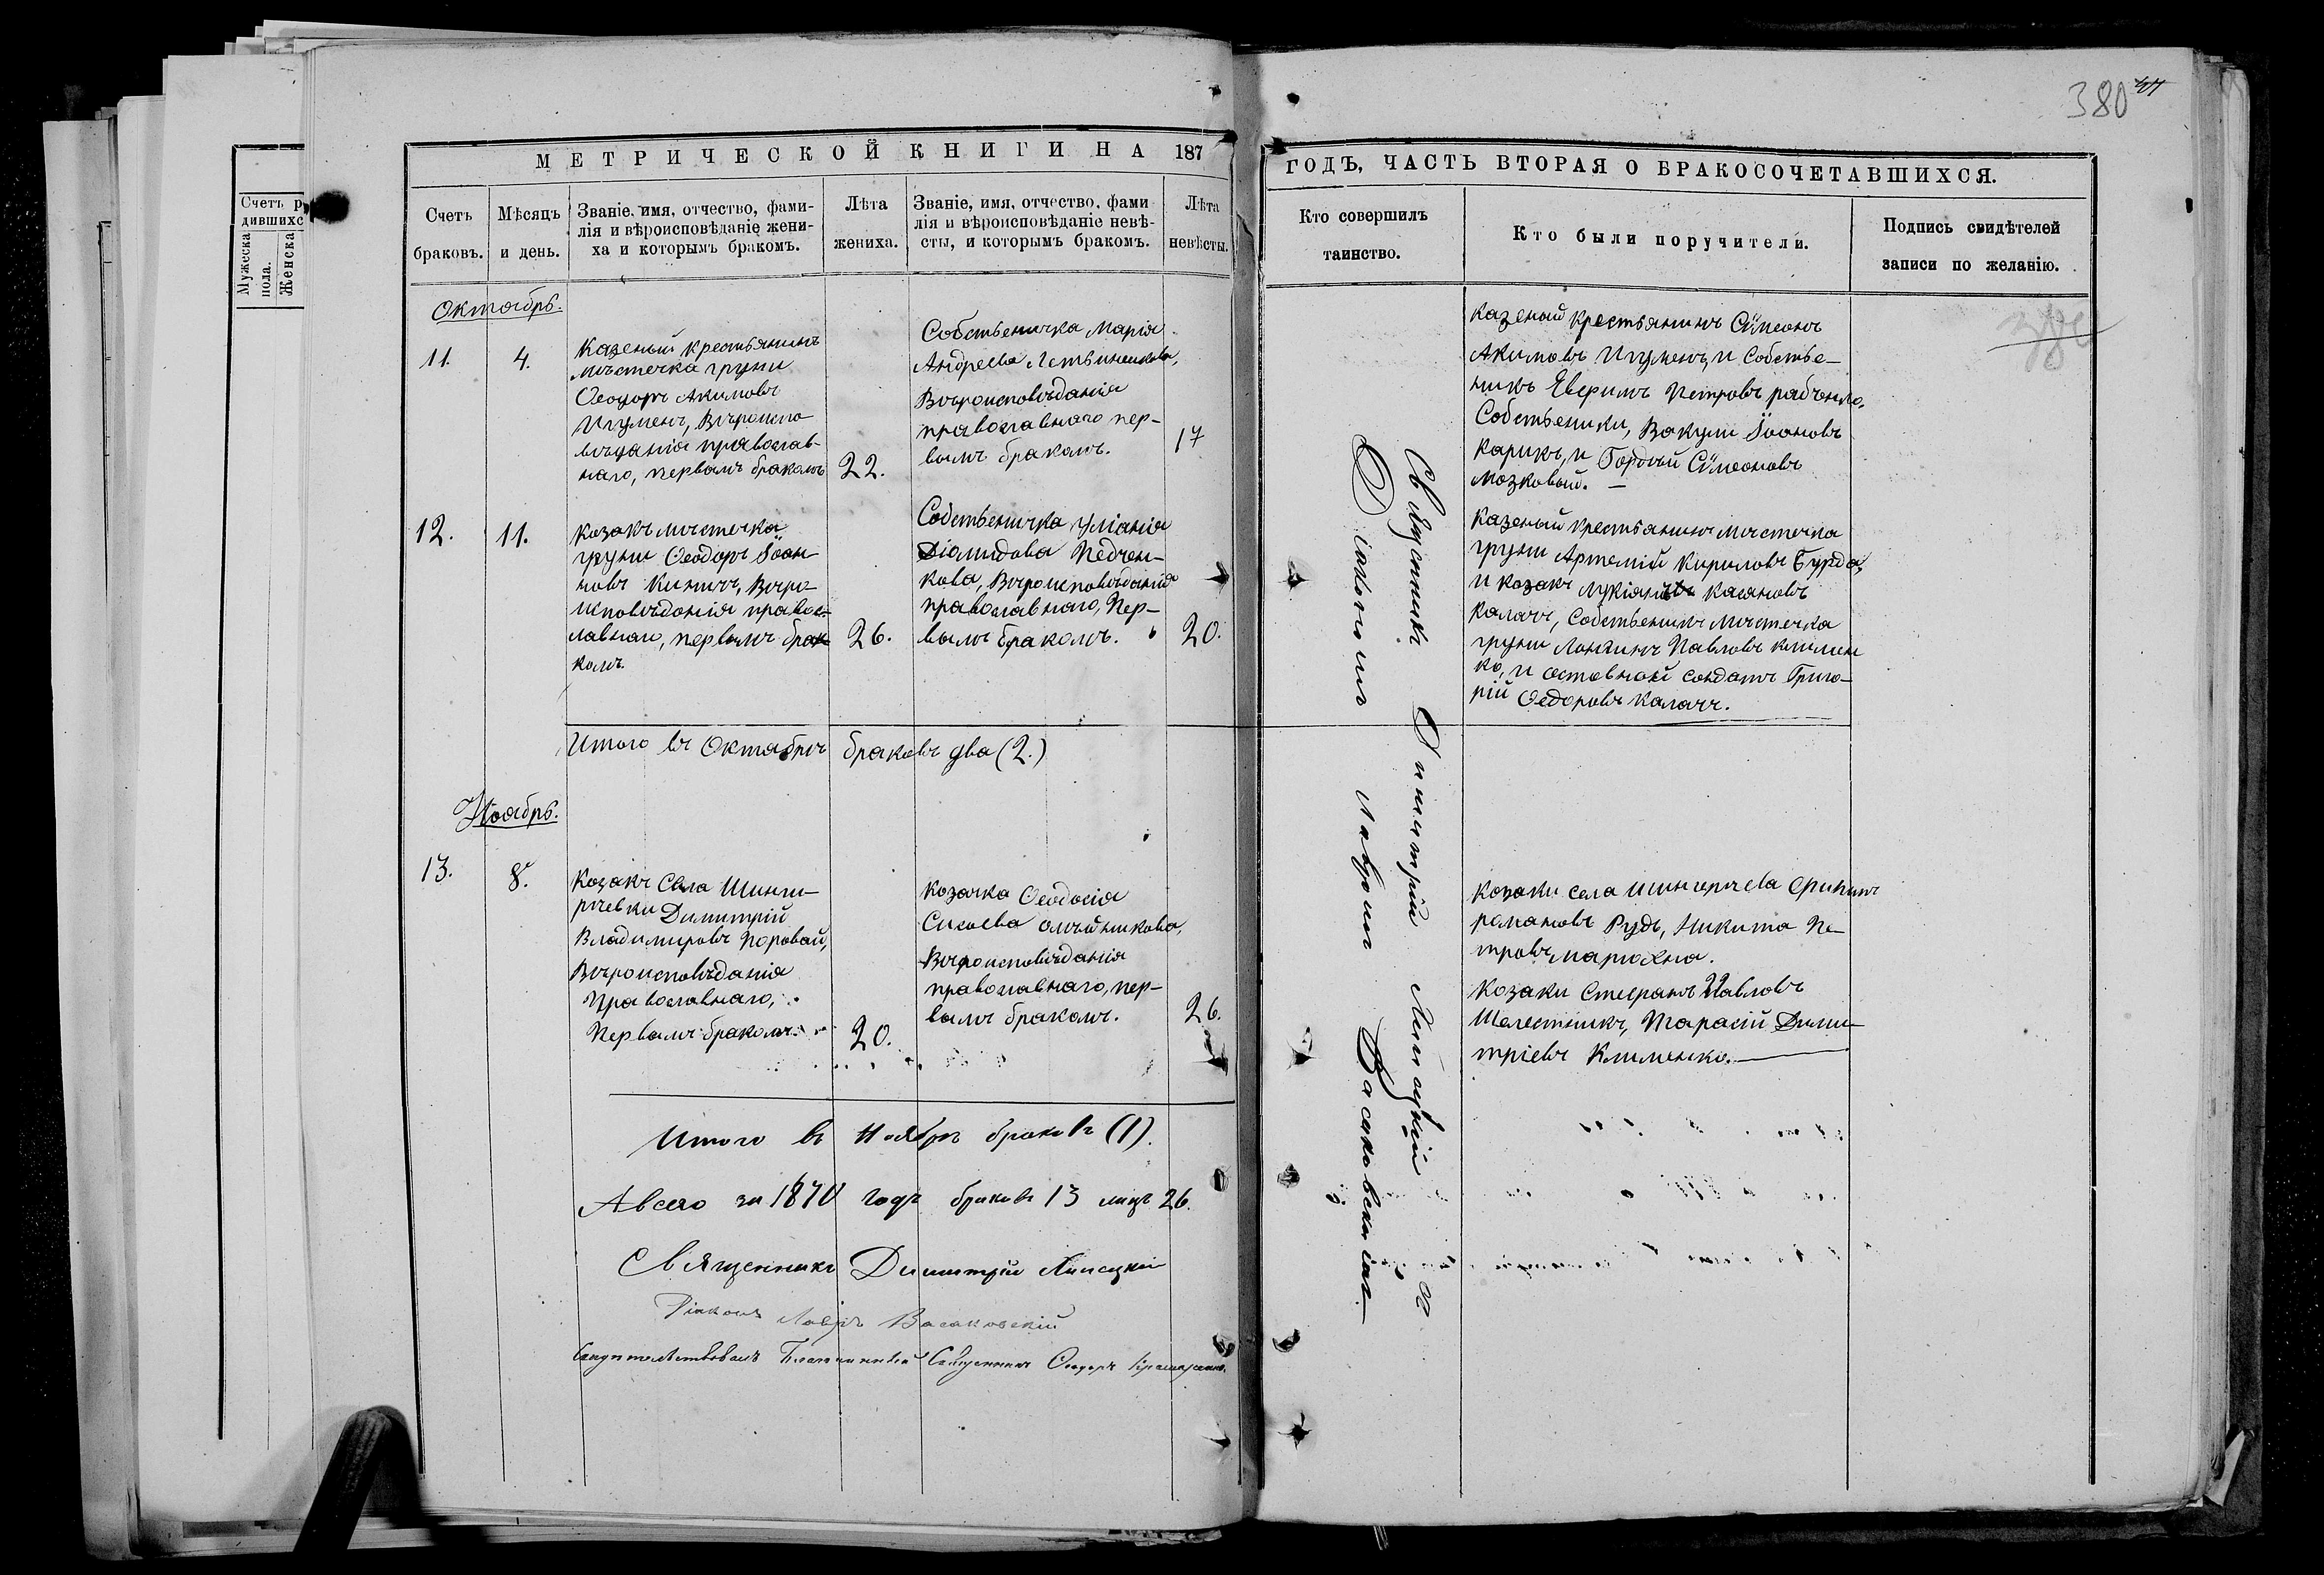 380
МЕТРИЧЕСКОЙ КНИГИ НА 187
ГОДЪ, ЧАСТЬ ВТОРАЯ О БРАКОСОЧЕТАВШИХСЯ.
Счетъ р
дившихс
Мужеска
пола.
Женска
Счетъ
браковъ.
Мѣсяцъ
и день.
Званіе, имя, отчество, фами-
лія и вѣроисповѣданіе жени-
ха и которымъ бракомъ.
Лѣта
жениха.
Званіе, имя, отчество, фами
лія и вѣроисповѣданіе невѣ-
сты, и которымъ бракомъ.
Лѣта
невѣсты.
Кто совершилъ
таинство.
Кто были поручители.
Подпись свидѣтелей
записи по желанію.
Октябрь.
11.
4.
Казеный крестьянинъ
мѣстечка груни
Ѳеодоръ Акимовъ
Игуменъ, Вѣроиспо-
вѣданія православ-
наго, первымъ бракомъ
22.
Собственичка Марія
Андреева
Вѣроисповѣданія
православнаго пер-
вымъ бракомъ.
17
Казеный крестьянинъ Сѵмеонъ
Акимовъ Игуменъ, и Собстве-
никъ Евфимъ Петровъ рабченко,
Собственики, Вакули Іоановъ
Карикъ, и Гордѣй Сѵмеоновъ
мозковый. —
12.
11.
Козакъ мѣстечка
груни Ѳеодоръ Іоан-
новъ Вѣро-
исповѣданія правос-
лавнаго, первымъ бра-
комъ.
26.
Собственичка Уліанія
Діомидова Педчен-
кова, Вѣроисповѣданія
православнаго, пер-
вымъ бракомъ.
20.
Казеный крестьянинъ мѣстечка
груни Артемій Кириловъ Бурда,
и козакъ Касяновъ
Калачъ, Собственикъ мѣстечка
груни Лонгинъ Павловъ климен
ко, и отставной солдатъ Григо-
рій Ѳедоровъ Калачъ.
Итого въ Октябрѣ браковъ два (2.)
Ноябрь.
13.
8.
Козакъ Села Шинги-
рѣевки Димитрій
Владимировъ Поровай,
Вѣроисповѣданія
Православнаго,
Первымъ бракомъ
20.
Козачка Ѳеодосія
Сисоева олѣйникова,
Вѣроисповѣданія
православнаго, пер-
вымъ бракомъ.
26.
Козаки села
романовъ Рудъ, Никита Пе-
тровъ марюхна.
Козаки Стефанъ Павловъ
Шелестникъ, Тарасій Дими-
тріевъ Клименко.
Священникъ Димитрій Липецкій съ
Діакономъ Лавромъ Васаковскимъ
Итого въ Ноябрѣ браковъ (1).
А всего за 1870 годъ браковъ 13 лицъ 26.
Священникъ Димитрій Липецкій
Діаконъ Лавръ Васаковскій
Свидетельствовалъ Благочинный Священникъ Ѳеодоръ